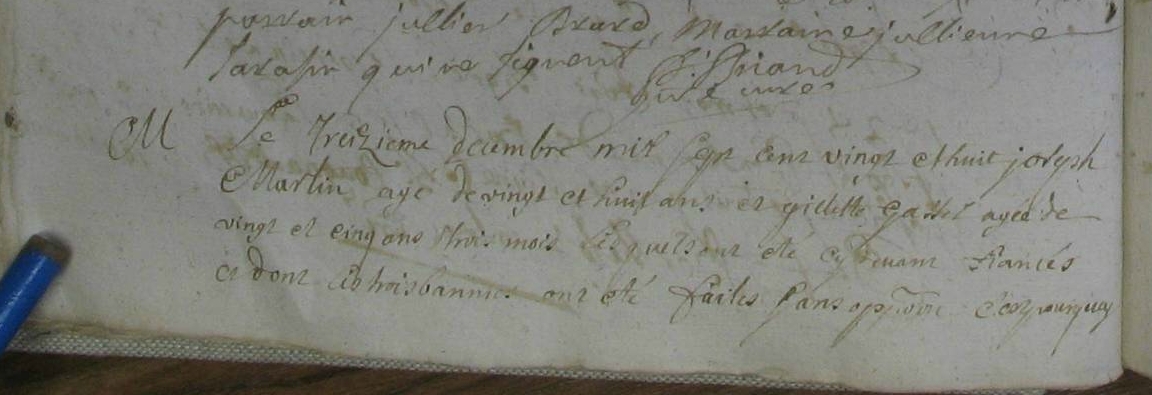 parrain jullien Brard, Marraine jullienne
Sarasin qui ne signent J: Briand
curé
M Le treizieme decembre mil sept cent vingt et huit joseph
Martin agé de vingt et huit ans et gilette Gastel agée de
vingt et cinq ans trois mois lesquels ont eté cy devant fiancés
et dont les trois bannies ont eté faites sans opp̃on̄ c'est pourquoy